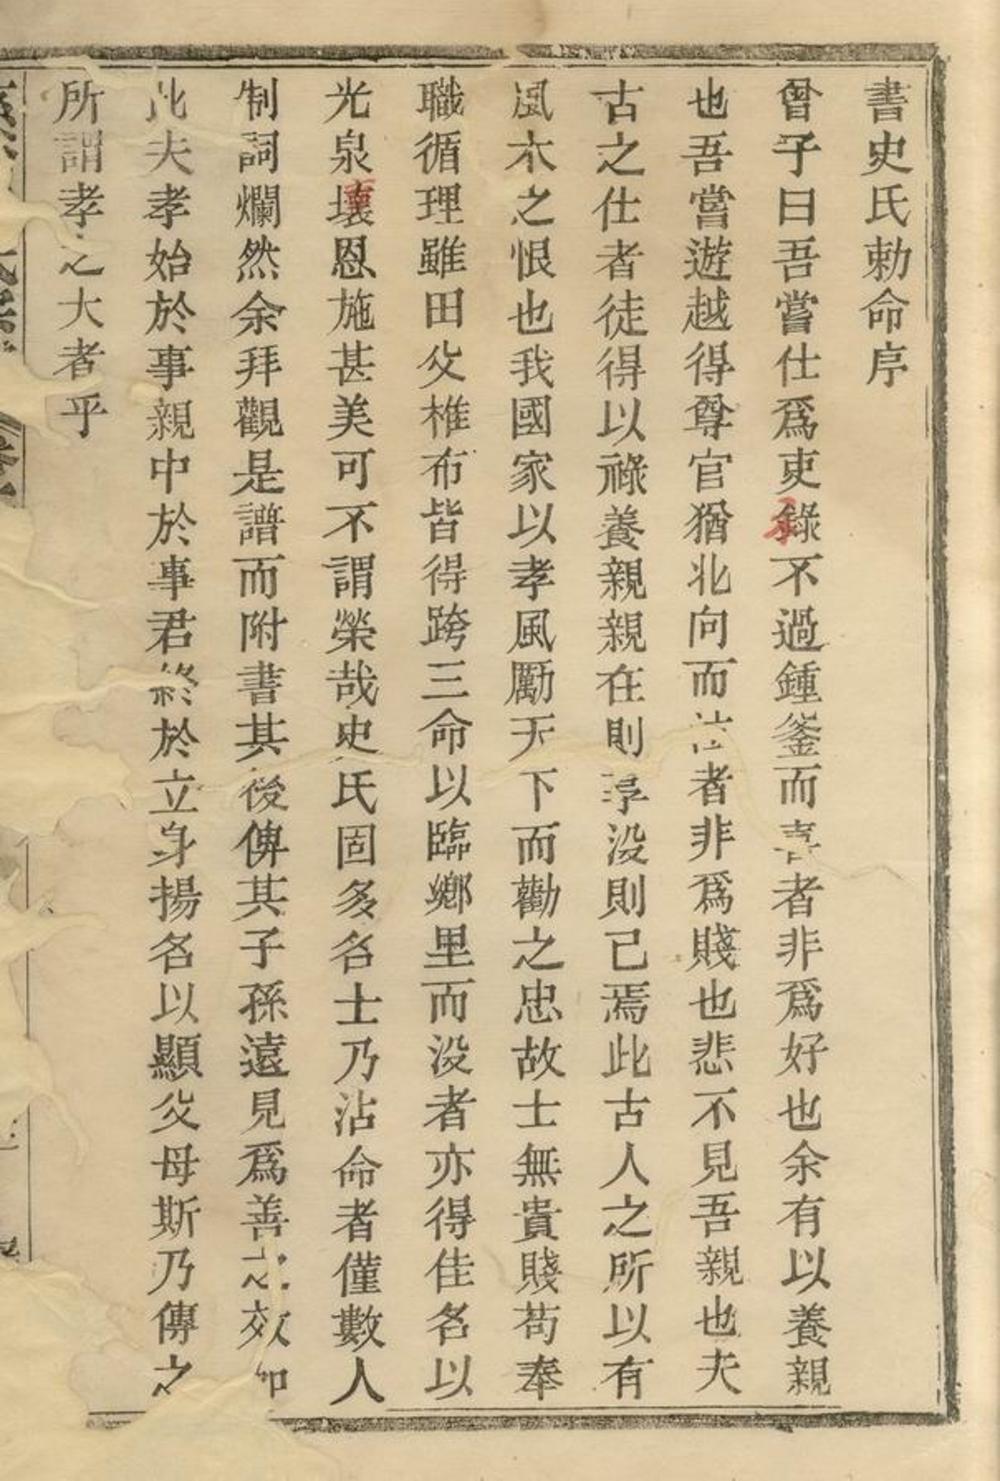 書史氏勅命序
曾子曰吾嘗仕爲吏錄不過鍾釜而喜者非爲好也余有以養親
也吾嘗遊越得尊官猶北向而泣者非爲賤也悲不見吾親也夫
古之仕者徒得以祿養親親在則享没則已焉此古人之所以有
風木之恨也我國家以孝風勵天下而勸之忠故士無貴賤苟奉
職循理雖田父椎布皆得跨三命以臨鄉里而没者亦得佳名以
光泉壤恩施甚美可不謂榮哉史氏固多名士乃沾命者僅數人
制詞爛然余拜觀是譜而附書其後俾其子孫遠見爲善之效如
此夫孝始於事親中於事君終於立身揚名以顯父母斯乃傳之
所謂孝之大者乎